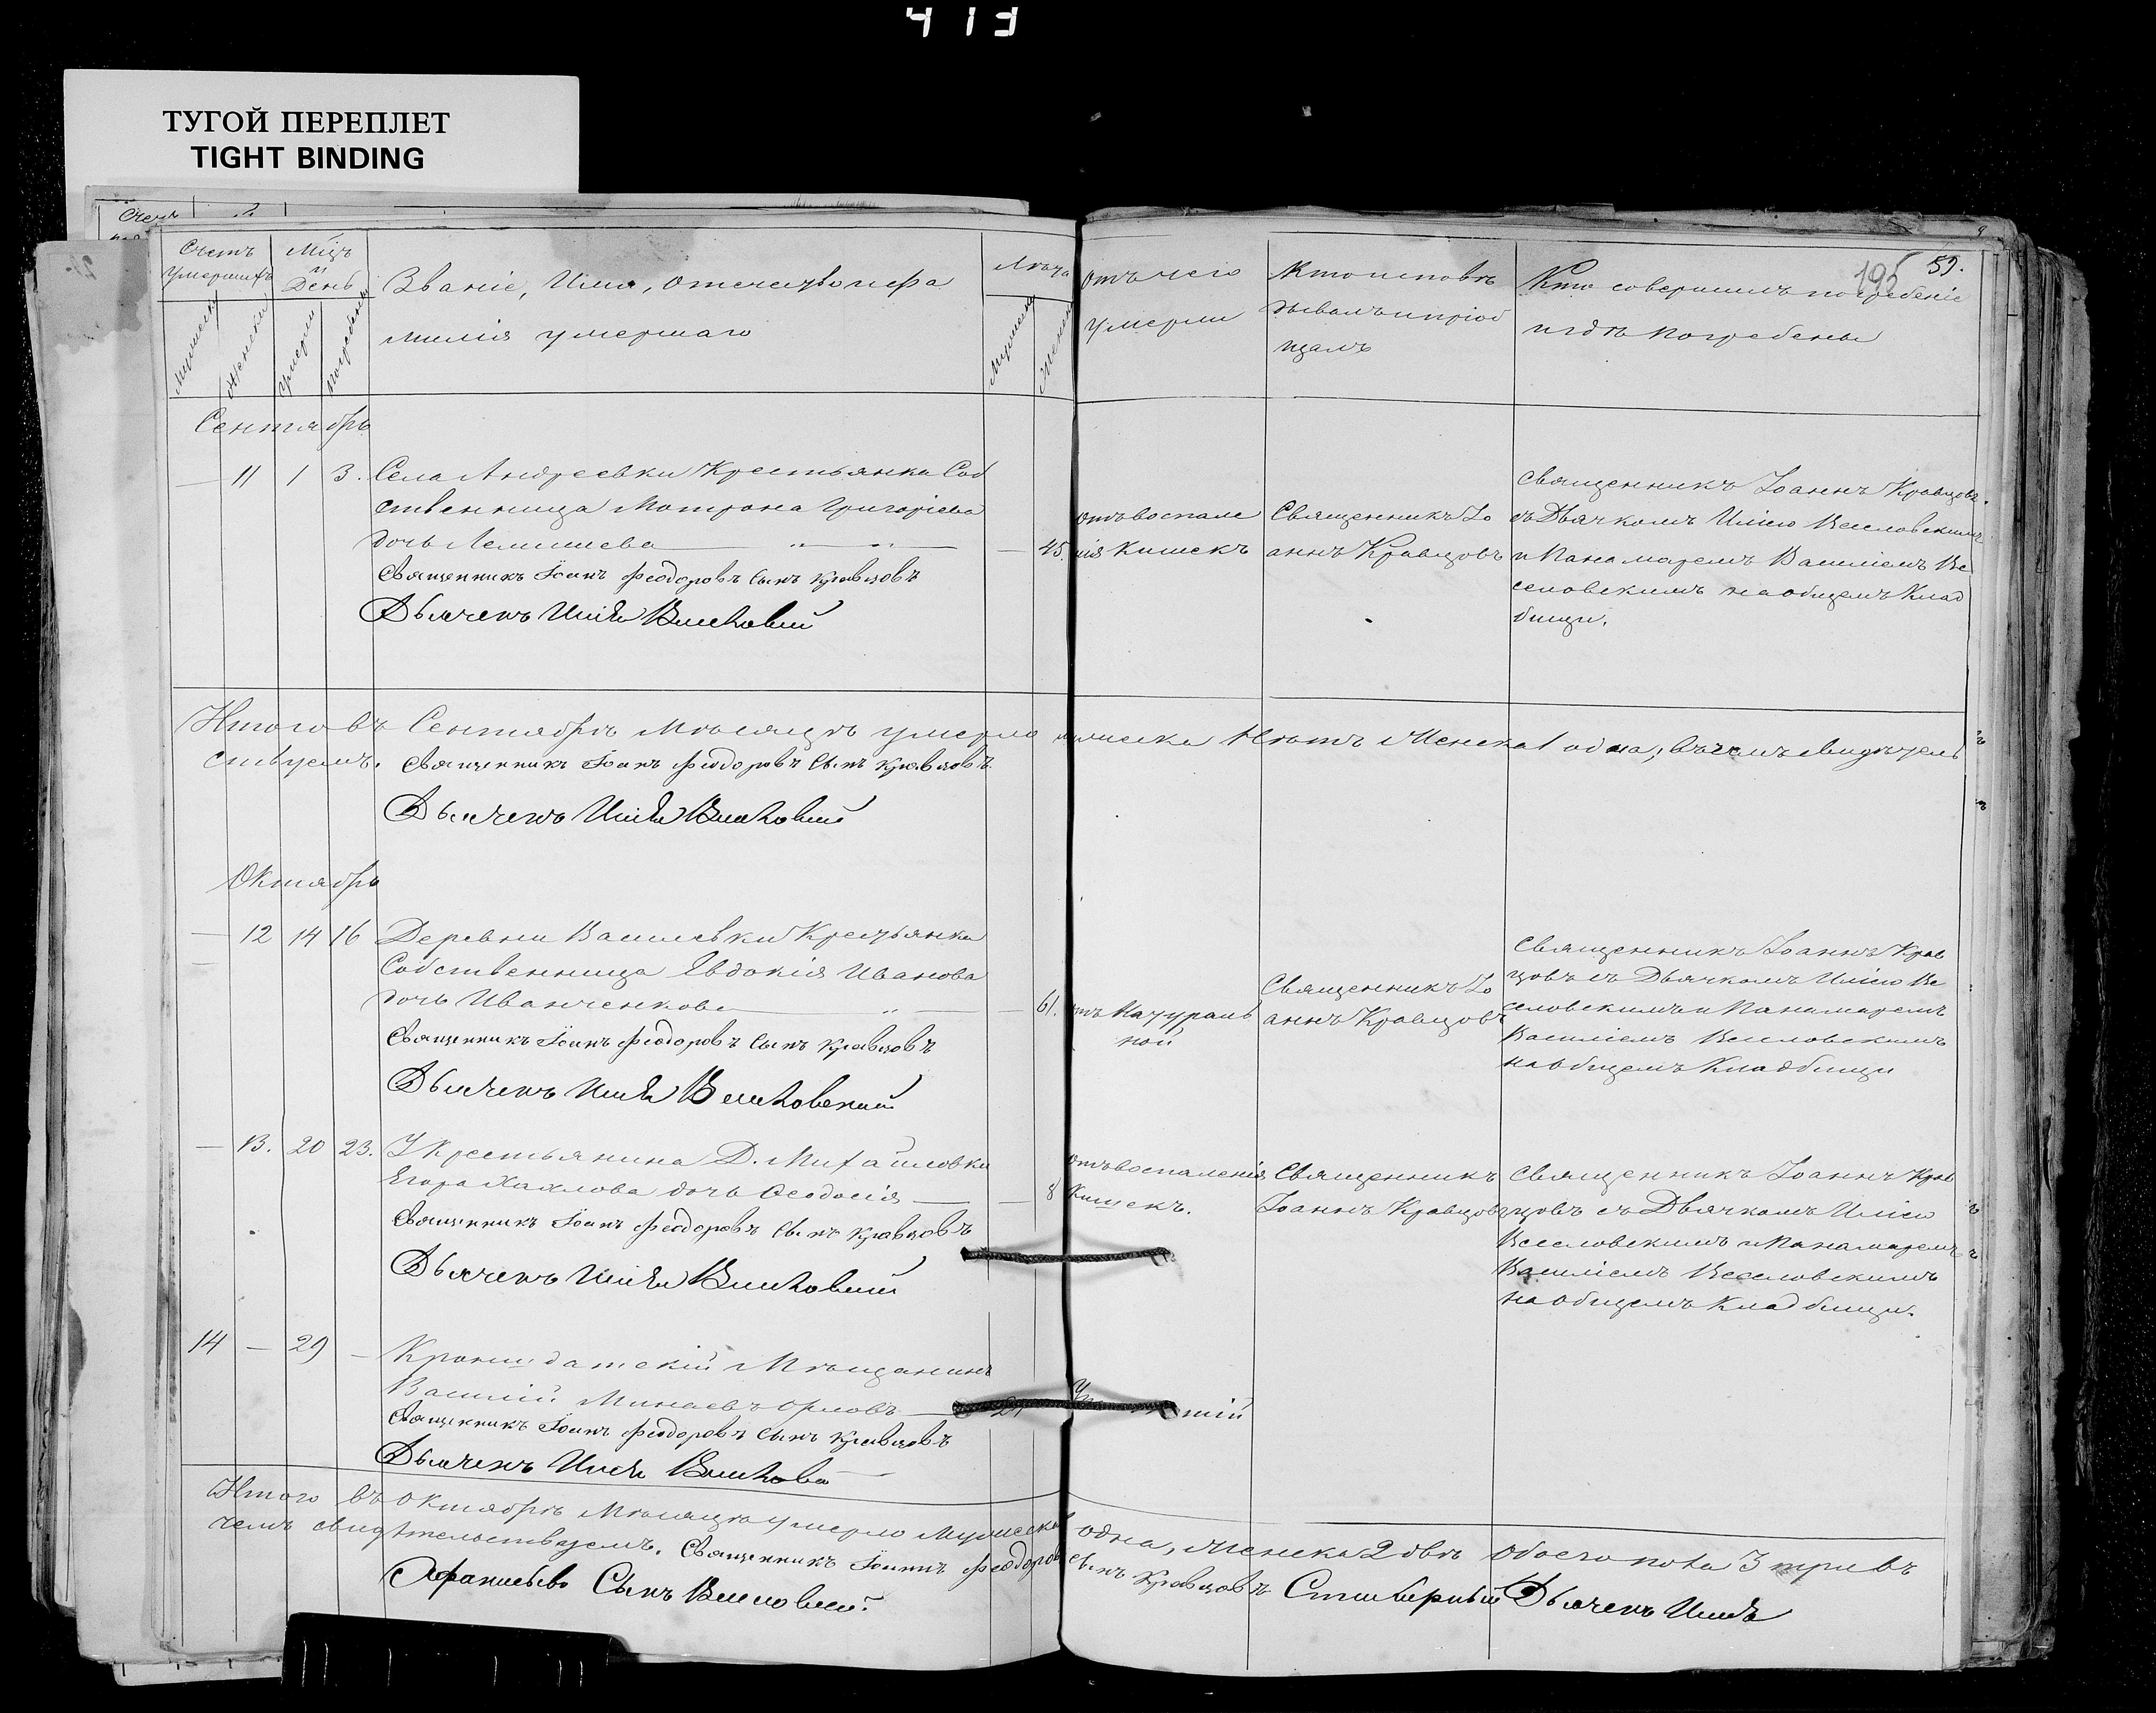 413
ТУГОЙ ПЕРЕПЛЕТ
TIGHT BINDING
195
59.
Счетъ умершихъ
Мѣц и День
Званіе, Имя, отечество и фа
милія умершаго
Лѣта
отъ чего
умерли
Кто исповѣ
дывалъ и пріоб
щалъ
Кто совершилъ погребеніе
и гдѣ погребены
Мужеска
Женска
Умерли
Погребены
Мужеска
Женска
Сентябрь
— 11 1 3. Села Андреевки Крестьянка Соб
ственница Матрона Григоріева
дочь
— 45.
отъ воспале
нія Кишекъ
Священникъ Іо
аннъ Кравцовъ
Священникъ Іоаннъ Кравцовъ
съ Дьячкомъ Иліею Веселовскимъ
и Панамаремъ Василіемъ Ве
селовскимъ на общемъ Клад
бищи.
Священникъ Іоанъ Феодоровъ сынъ Кравцовъ
Дьячекъ Илія
Итого въ Сентябрѣ Мѣсяцѣ умерло мужеска Нѣтъ Женска 1 одна; въ чемъ свидѣтель
ствуемъ. Священникъ Іоанъ Феодоровъ Сынъ Кравцовъ
Дьячекъ Илія
Октябрь
— 12 14 16 Деревни Василевки Крестьянка
Собственница Евдокія Иванова
дочь Иванченкова
— 61.
отъ Натураль
ной
Священникъ Іо
аннъ Кравцовъ
Священникъ Іоаннъ Крав
цовъ съ Дьячкомъ Иліею Ве
селовскимъ и Панамаремъ
Василіемъ Веселовскимъ
на общемъ Кладбищи
Священникъ Іоанъ Феодоровъ сынъ Кравцовъ
Дьячекъ Илія Веселовский
— 13. 20 23. У Крестьянина Д. Михайловки
Егора Хахлова дочь Феодосія
— 8
отъ воспаленія
Кишекъ.
Священникъ
Іоаннъ Кравцовъ
Священникъ Іоаннъ Крав
цовъ съ Дьячкомъ Иліею
Веселовскимъ и Панамаремъ
Василіемъ Веселовскимъ
на общемъ Кладбищи.
Священникъ Іоанъ Феодоровъ сынъ Кравцовъ
Дьячекъ Илія
14 — 29 — Кронштадтскій Мѣщанинъ
Василій Минаевъ Орловъ
Священникъ Іоанъ Феодоровъ сынъ Кравцовъ
Дьячекъ Илія
Итого въ Октябрѣ Мѣсяцѣ умерло Мужеска одна, Женска 2 двѣ обоего пола 3 три въ
чемъ свидѣтельствуемъ. Священникъ Іоаннъ Феодоровъ сынъ Кравцовъ Дьячекъ Илія
Афанасьевъ Сынъ